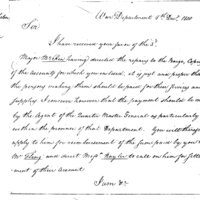 War Department 8th Decr. 1800
Sir
I have received your favor of the 3d.
Major having directed the repairs to the Barge, Copies
of the accounts for which you inclosed, it is just and proper that
the persons making them should be paid for their services and
supplies. I conceive however that the payment should be made
by the Agent of the Quarter Master General as appropriately
within the province of that Department. You will therefore
apply to him for reimbursement of the sums paid by you to
Mr. and direct Messrs. Taylor to call on him for settle
ment of their account
I am &c.